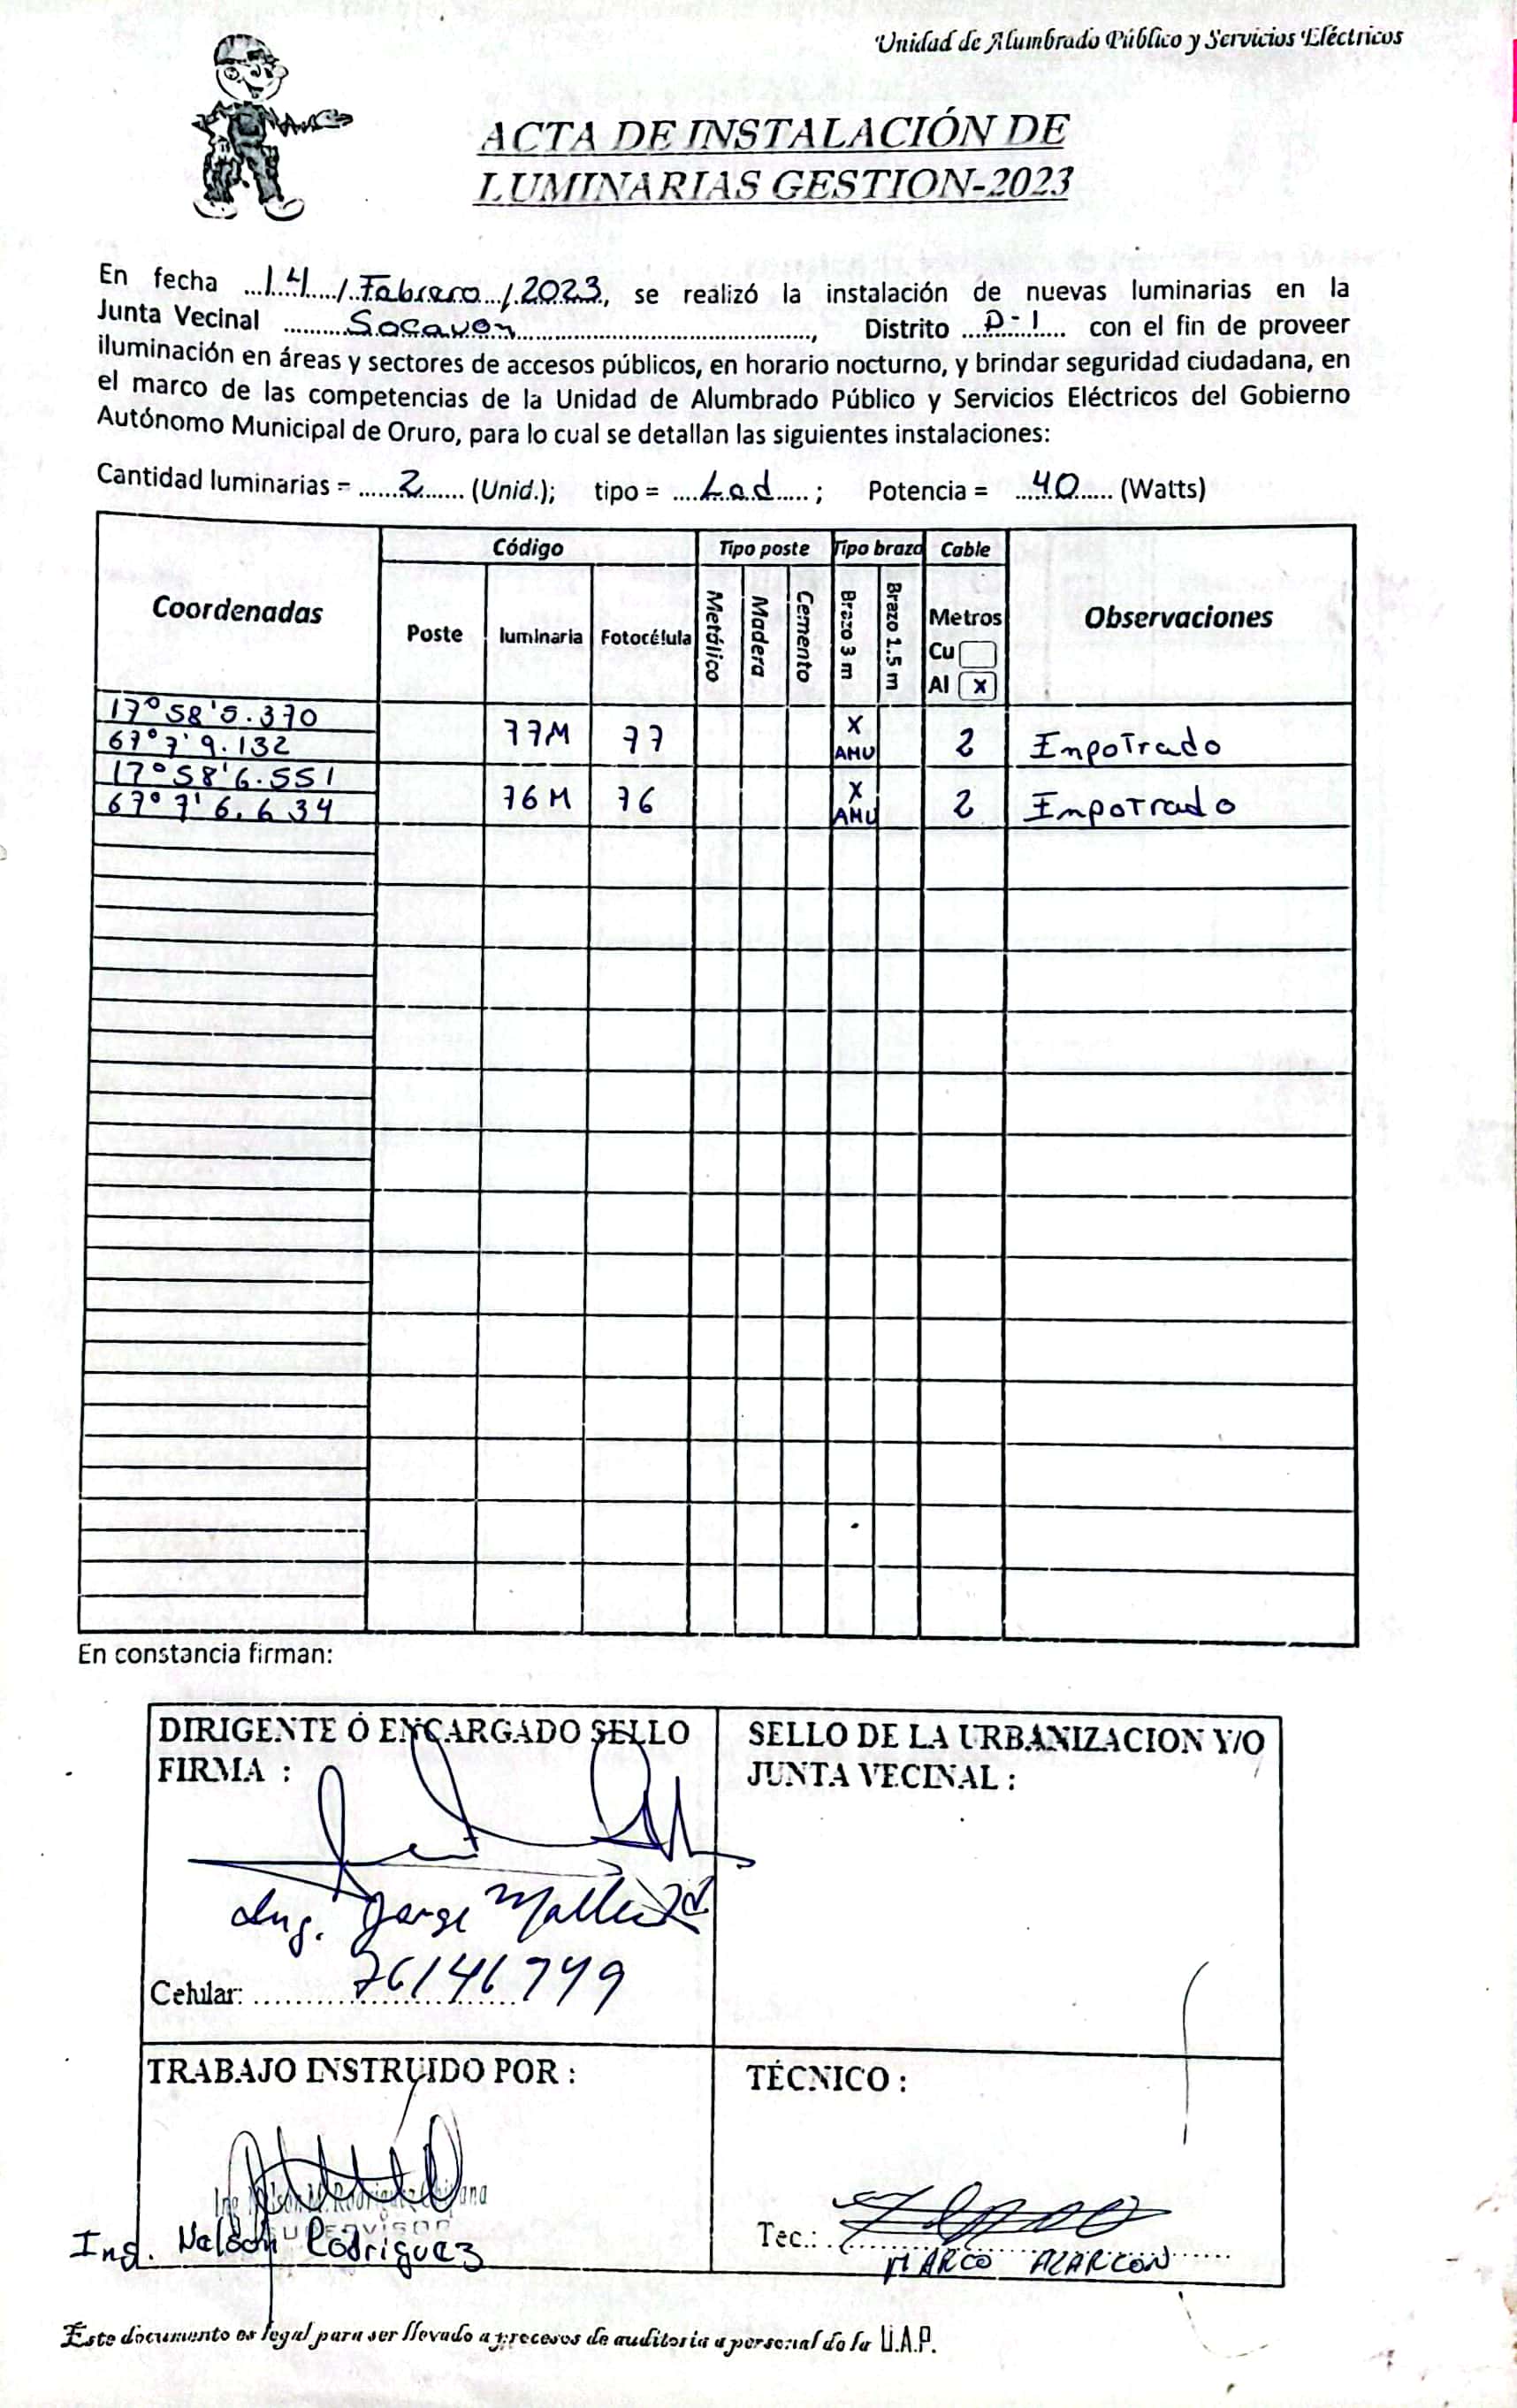 Unidad de Alumbrado Público y Servicios Eléctricos
ACTA DE INSTALACIÓN DE
LUMINARIAS GESTION-2023
En fecha 14 / Febrero / 2023, se realizó la instalación de nuevas luminarias en la
Junta Vecinal Socavon, Distrito D-1 con el fin de proveer
iluminación en áreas y sectores de accesos públicos, en horario nocturno, y brindar seguridad ciudadana, en
el marco de las competencias de la Unidad de Alumbrado Público y Servicios Eléctricos del Gobierno
Autónomo Municipal de Oruro, para lo cual se detallan las siguientes instalaciones:
Cantidad luminarias = 2 (Unid.); tipo = Led ; Potencia = 40 (Watts)
Coordenadas Código Tipo poste Tipo brazo Cable Observaciones
Poste luminaria Fotocélula Metálico Madera Cemento Brazo 3 m Brazo 1.5 m Metros
Cu
Al X
17° 58' 5.370
77M 77 X AMU 2 Empotrado
67° 7' 9.132
17° 58' 6.551
76M 76 X AMU 2 Empotrado
67° 7' 6.634
En constancia firman:
DIRIGENTE Ó ENCARGADO SELLO
FIRMA :
SELLO DE LA URBANIZACION Y/O
JUNTA VECINAL :
Ing. Jorge
Celular: 76146749
TRABAJO INSTRUIDO POR :
TÉCNICO :
Ing. Nelson Rodriguez
SUPERVISOR
Ing. Nelson Rodriguez
Tec.:
MARCO ALARCON
Este documento es legal para ser llevado a procesos de auditoria a personal de la U.A.P.